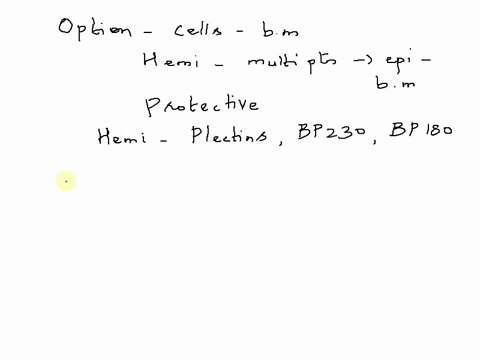 Option - cells - b.m
Hemi - multi pts -> epi -
b.m
Protective
Hemi - Plectins, BP230, BP180